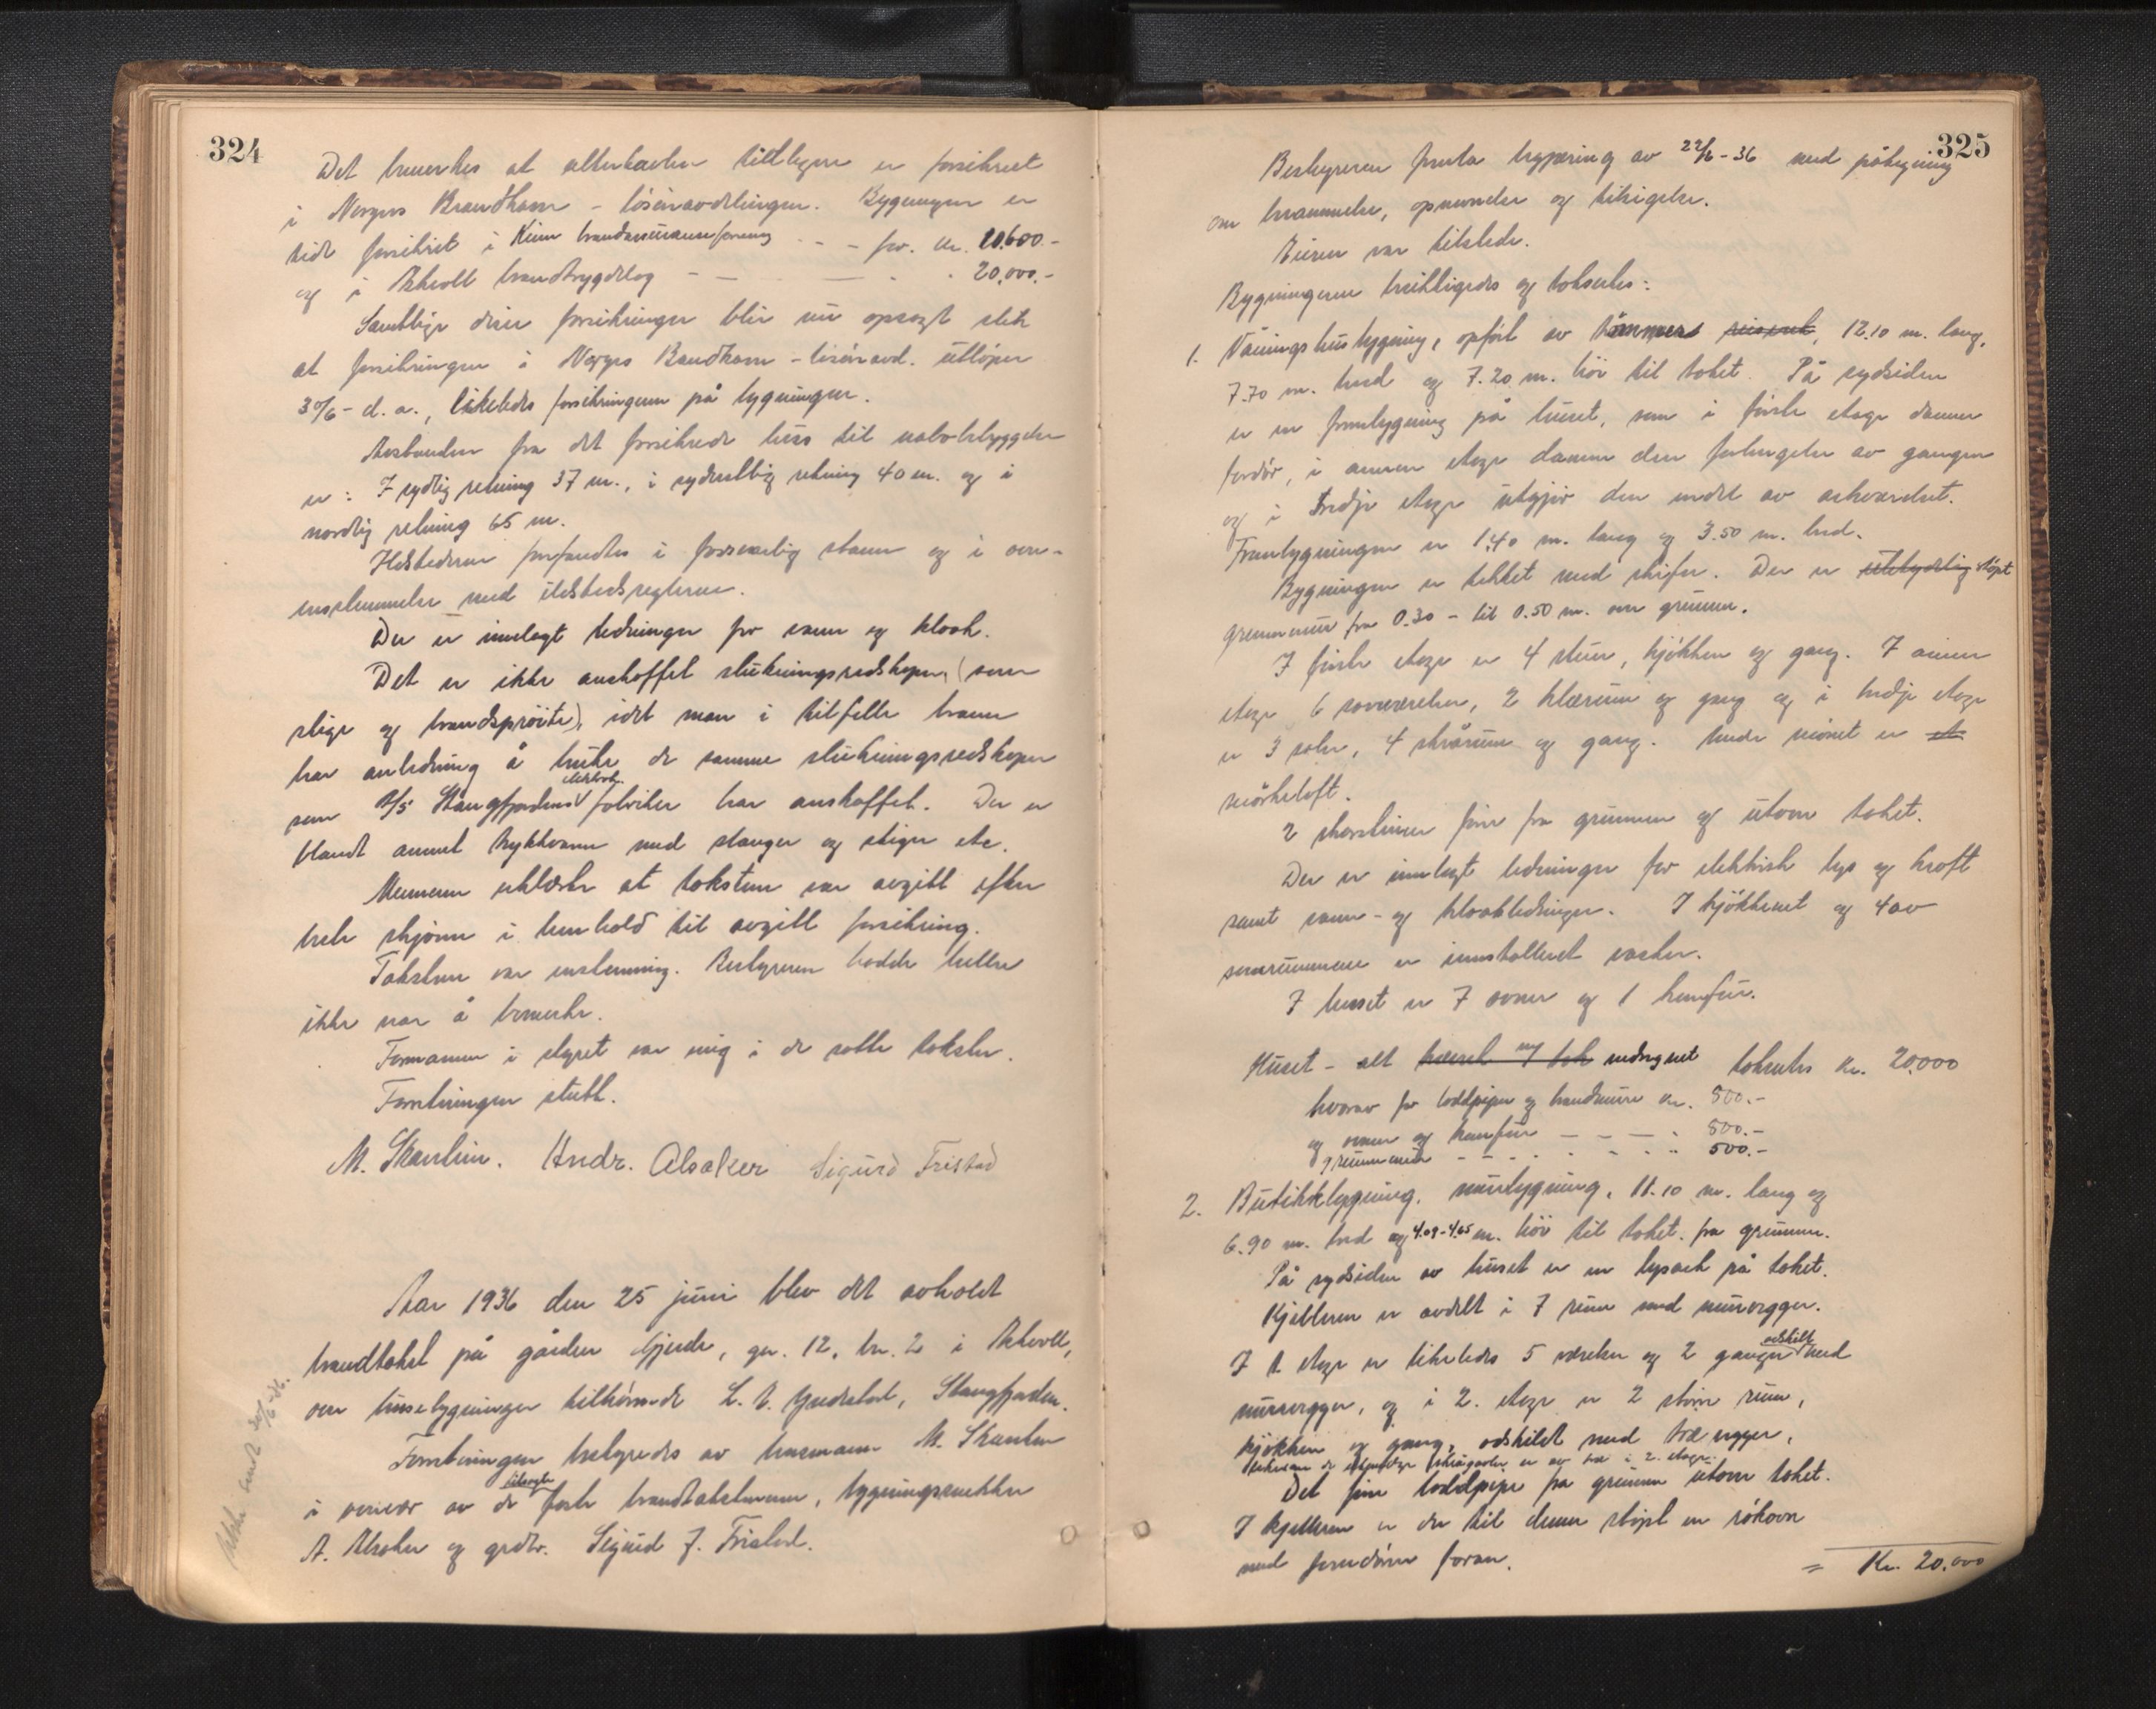 324
Det bemerkes at altenkanten tidligere er forsikret
i Norges Brandkasse - løsøreavdelingen. Bygningen er
tidl. forsikret i Kinn brandassuranseforening - - - for kr. 20.600.-
og i Askvoll brandtrygdelag - - - 20.000.-
Samtlige disse forsikringer blir nu opsagt slik
at forsikringen i Norges Brandkasse - løsøreavd. utløper
30/6 - d. a., likeledes forsikringene på bygningen.
Avstanden fra det forsikrede hus til nabobebyggelse
er: I sydlig retning 37 m., i sydvestlig retning 40 m. og i
nordlig retning 65 m.
Ildstederne forfandtes i forsvarlig stann og i over-
ensstemmelse med ildstedsreglerne.
Der er innlagt ledninger for vann og kloak.
Det er ikke anskaffet slukningsredskaper, (som
stige og brandsprøite), idet man i tilfelle brann
har anledning å bruke de samme slukningsredskaper
som A/S Stangfjordens elektrok. fabriker har anskaffet. Der er
blandt annet trykkvann med slanger og stiger etc.
Mennene erklærte at taksten var avgitt efter
beste skjønn i henhold til avgitt forsikring.
Taksten var enstemmig. Bestyreren hadde heller
ikke noe å bemerke.
Formannen i styret var enig i de satte takster.
Forretningen sluttet.
M. Skarstein. Andr. Alsaker Sigurd Fristad
Aar 1936 den 25 juni blev det avholdt
brandtakst på gården Gjerde, gn. 12, br. 2 i Askvoll,
over husebygninger tilhørende L. A. Yndestad, Stangfjorden.
Forretningen bestyredes av lensmann M. Skarstein
i overvær av de tilkaldte faste brandtakstmenn, bygningssnekker
A. Alsaker og grdbr. Sigurd J. Fristad.
Utskr. sendt 30/6-36.
325
Bestyreren fremla begjæring av 22/6-36 med påtegning
om berammelse, opnevnelse og tilsigelse.
Eieren var tilstede.
Bygningerne besiktigedes og taksertes:
1. Våningshusbygning, opført av tømmer, 12.10 m. lang,
7.70 m. bred og 7.20 m. høi til taket. På sydsiden
er en frambygning på huset, som i første etage danner
fordør, i annen etage danner den forlengelse av gangen
og i tredje etage utgjør den endel av arkværelset.
Frambygningen er 1.40 m. lang og 3.50 m. bred.
Bygningen er tekket med skifer. Der er utelyselig støpt
grunnmur fra 0.30 - til 0.50 m. over grunnen.
I første etage er 4 stuer, kjøkken og gang. I annen
etage 6 soveværelser, 2 klærum og gang og i tredje etage
er 3 saler, 4 skrårum og gang. Under mønet er et
mørkeloft.
2 skorstener føre fra grunnen og utover taket.
Der er innlagt ledninger for elektrisk lys og kraft
samt vann- og kloakledninger. I kjøkkenet og 4 av
soverummene er innstalleret vasker.
I huset er 7 ovner og 1 komfur.
Huset - alt medregnet taksertes kr. 20.000
hvorav for loddpiper og brandmure kr. 800.-
og ovner og komfur - - - 800.-
grunnmur - - - 500.-
2. Butikkbygning, murbygning, 11.10 m. lang og
6.90 m. bred og 4.09-4.65 m. høi til taket fra grunnen.
På sydsiden av huset er en lysark på taket.
Kjelleren er avdelt i 7 rum med murvegger.
I 1. etage er likeledes 5 værelser og 2 ganger adskilt med
murvegger, og i 2. etage er 2 større rum,
kjøkken og gang, adskilt med trævegger,
Det føre loddpipe fra grunnen utover taket.
I kjelleren er der til denne støpt en røkovn
med jerndører foran.
= Kr. 20.000